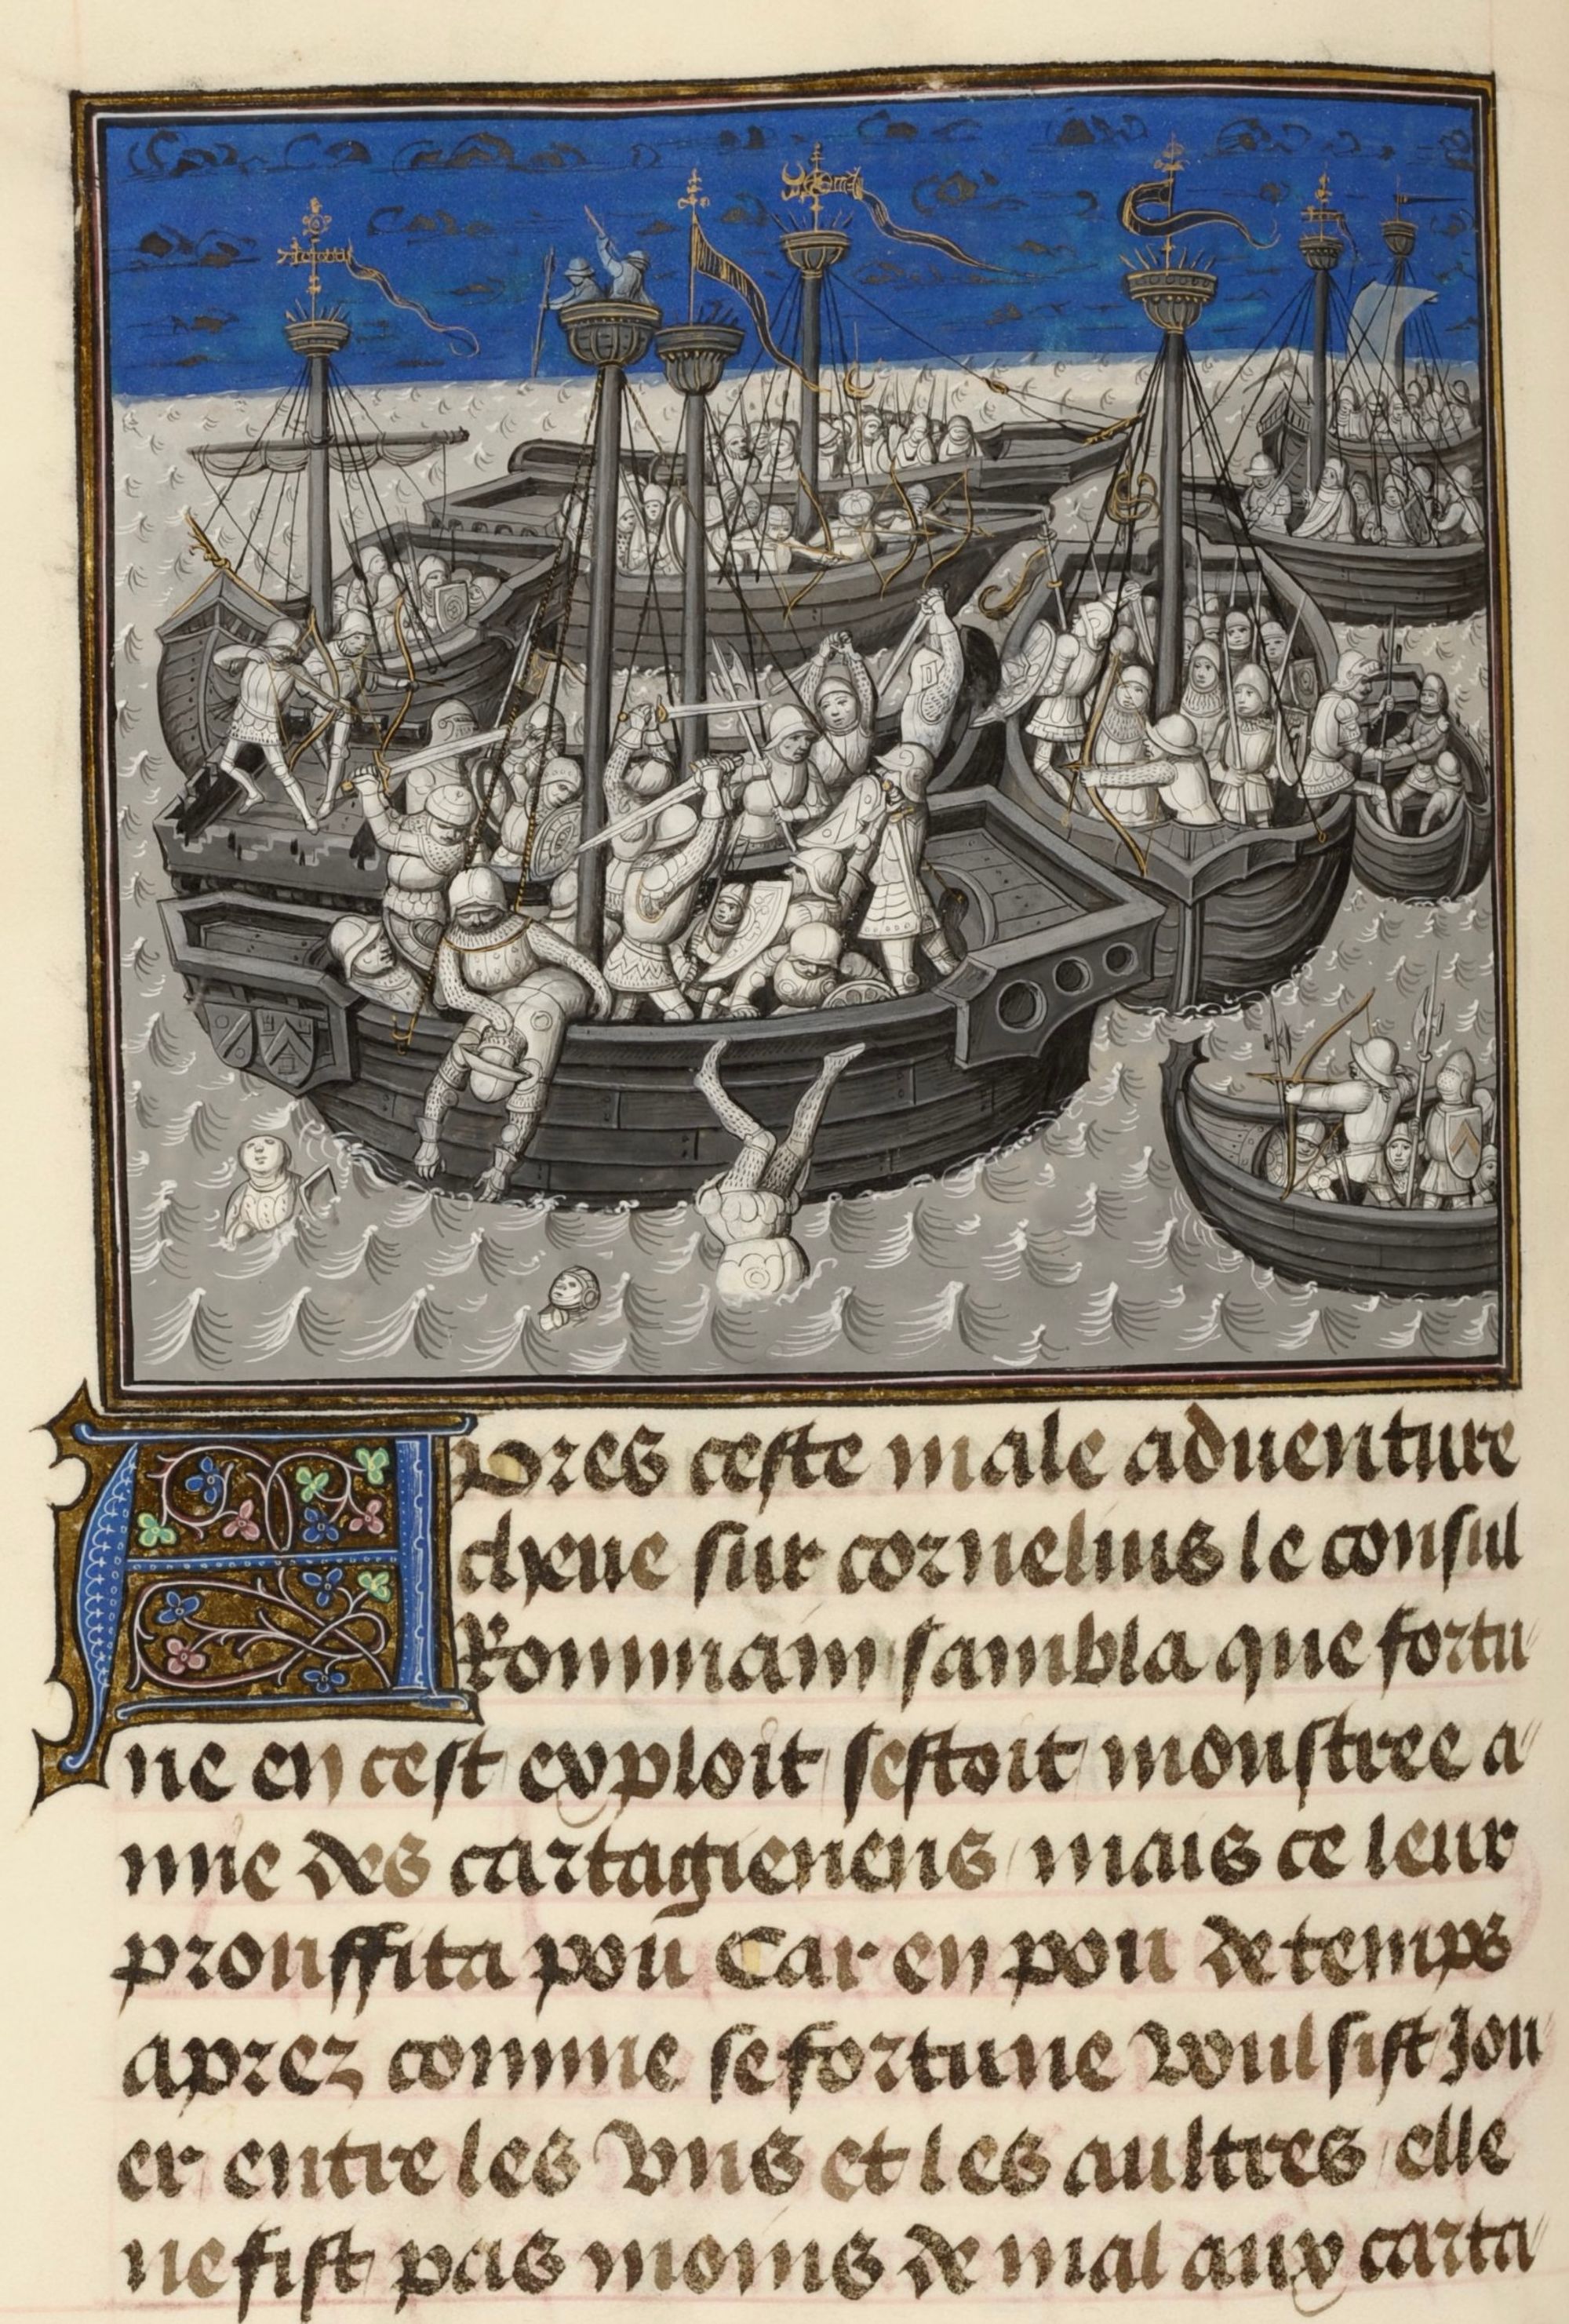 Apres ceste male aduenture
cheue sur cornelius le consul
Rommain sambla que fortu
ne en cest exploit sestoit monstree a
mie des cartagienens mais ce leur
prouffita pou Car en pou de temps
aprez comme se fortune voulsist Jou
er entre les vns et les aultres elle
ne fist pas moins de mal aux carta